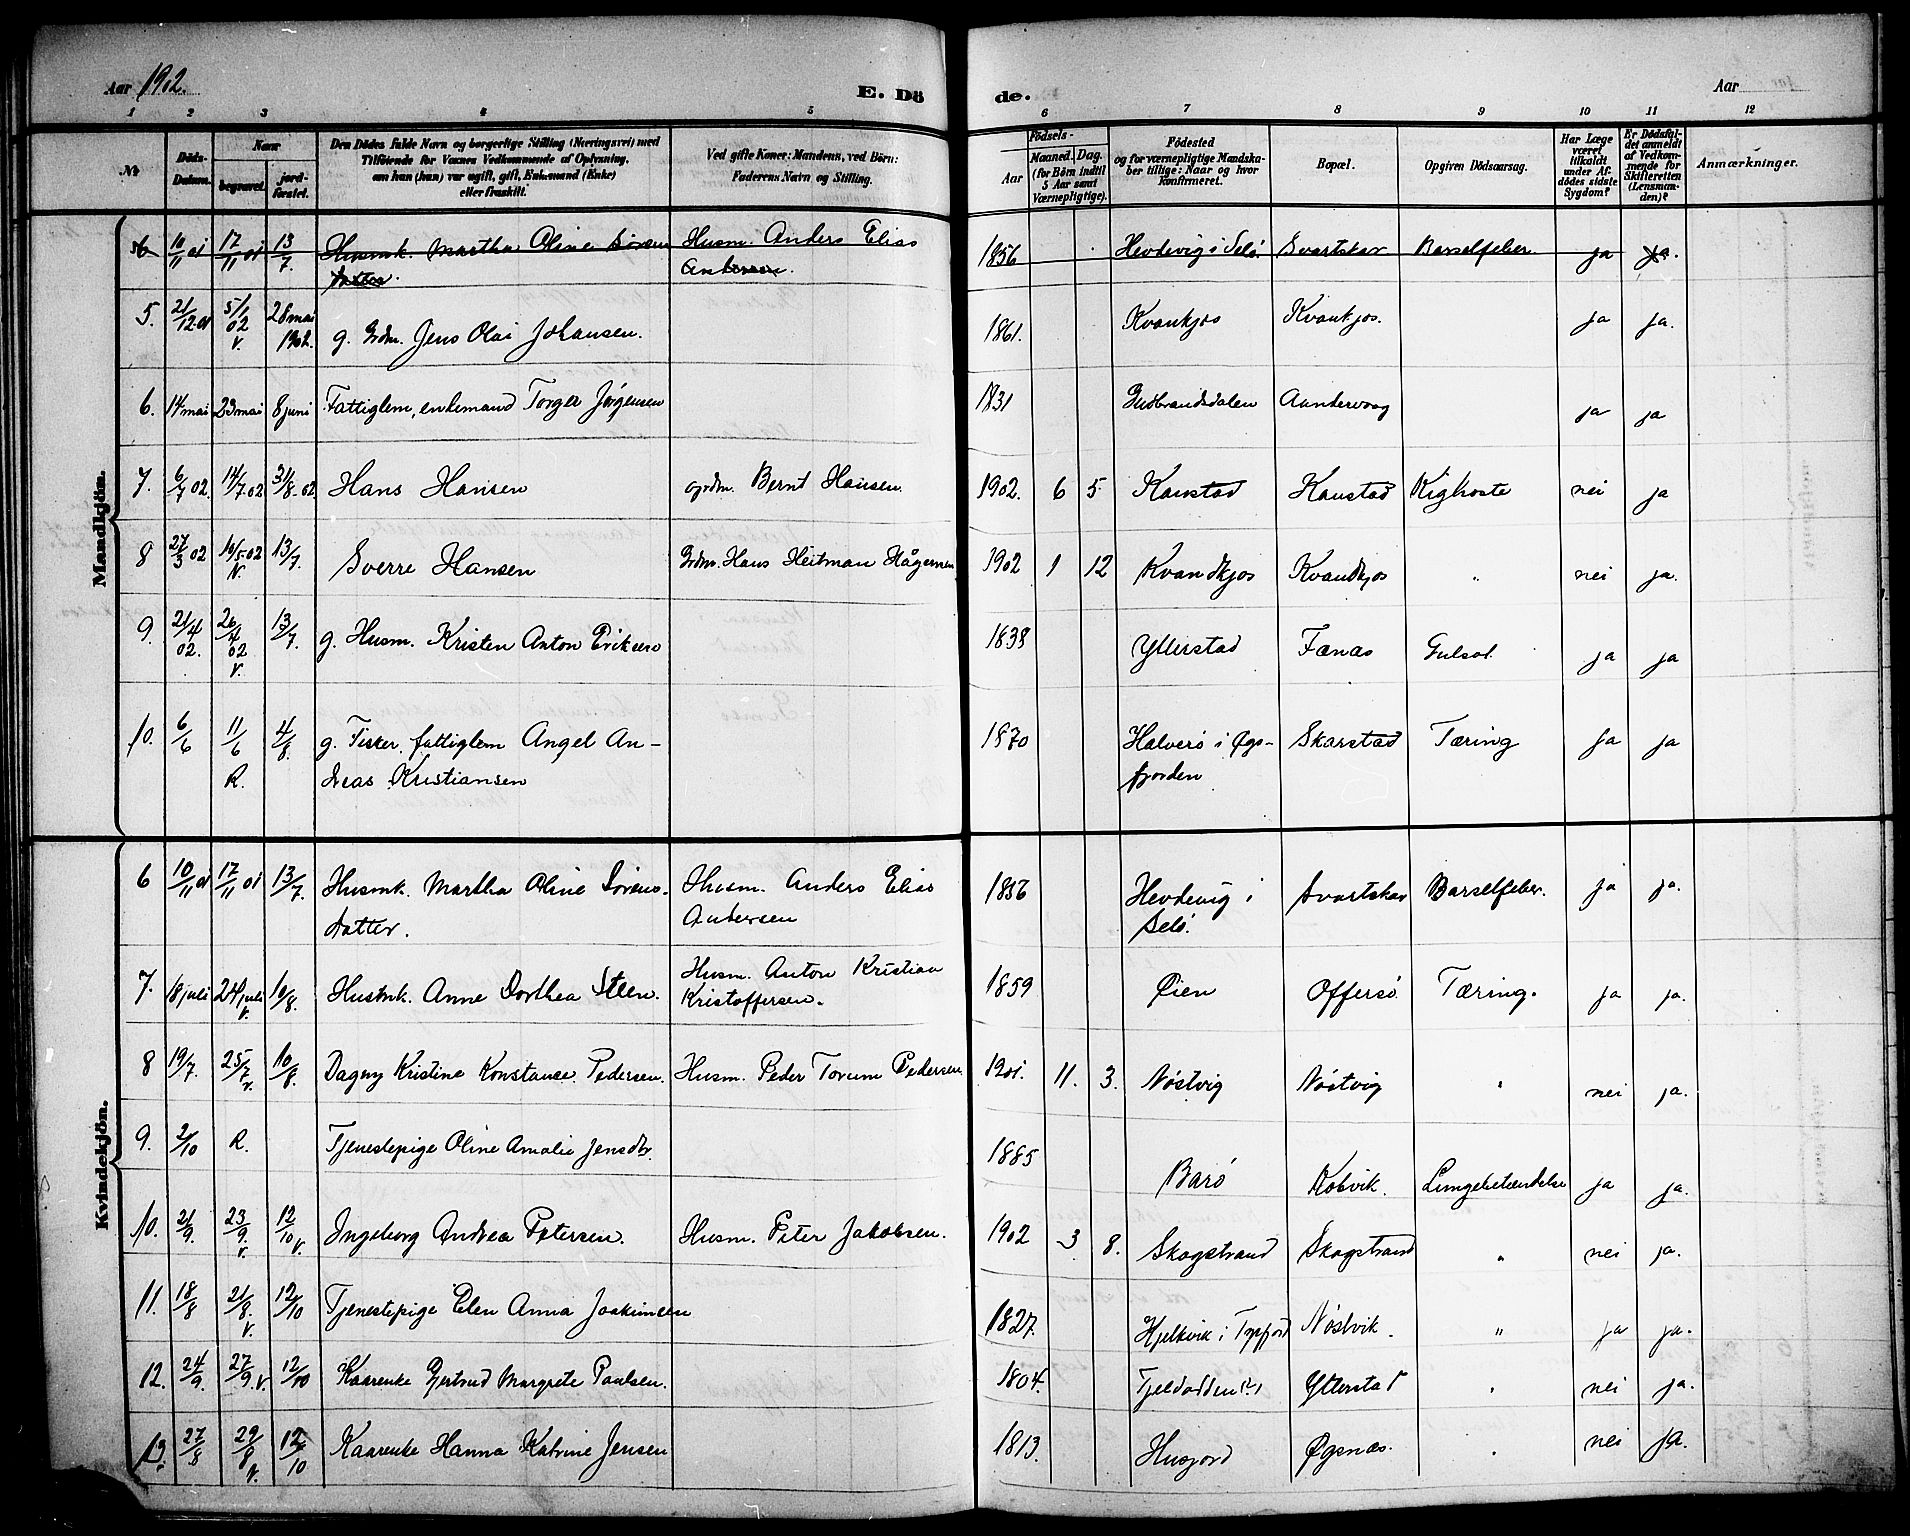 Aar 1902.
E. Dö
de.
Aar
1 2 3 4 5 6 7 8 9 10 11 12
№
Döds-Datum.
Naar
begravet.
jord-fæstet.
Den Dödes fulde Navn og borgerlige Stilling (Næringsvei) med
Tilföiende for Voxnes Vedkommende af Oplysning,
om han (hun) var ugift, gift, Enkemand (Enke)
eller fraskilt.
Ved gifte Koner: Mandens, ved Börn:
Faderens Navn og Stilling.
Födsels-
Aar
Maaned. Dag.
(for Börn indtil
5 Aar samt
Værnepligtige).
Födested
og for værnepligtige Mandska-
ber tillige: Naar og hvor
Konfirmeret.
Bopæl.
Opgiven Dödsaarsag.
Har Læge
været
tilkaldt
under Af-
dödes sidste
Sygdom?
Er Dödsfal-
det anmeldt
af Vedkom-
mende for
Skifteretten
(Lensman-
den)?
Anmærkninger.
Mandkjön.
6 10/11 01 17/11 01 13/7. Husmk. Martha Oline Sørens Husm. Anders Elias 1856 Hevdevig i Selø. Svartskar Barselfeber. ja ja.
datter. Andersen.
5. 21/12.01 5/1 02 v. 28 mai 1902. g. Grdm. Jens Olai Johansen. 1861. Kvankjos Kvankjos. ja ja.
6. 14 mai 23 mai 8 juni Fattiglem, enkemand Torger Jørgensen 1831 Gudbrandsdalen Aandervaag ja ja
7. 6/7 02. 14/7.02 31/8-02 Hans Hansen grdm. Bernt Hansen. 1902. 6 5. Kanstad Kanstad Kighoste nei ja
8 27/3 02 16/5.02 N. 13/7. Sverre Hansen Grdm. Hans Heitman Hågensen 1902 1 12 Kvandkjos Kvandkjos " nei ja.
9. 21/4 02. 26/4 02 v. 13/7. g. Husm. Kristen Anton Eriksen 1838 Ytterstad Fænes Gulsot. ja ja
10. 6/6 11/6 R. 4/8. g. Fisker, fattiglem Angel An- 1870 Halverø i Øgs- Skarstad Tæring ja ja
dreas Kristiansen fjorden
Kvindekjön.
6 10/11 01 17/11 01 13/7. Husmk. Martha Oline Sørens- Husm. Anders Elias 1856 Hevdevig i Svartskar Barselfeber. ja ja.
datter. Andersen Selø.
7. 18 juli 24 juli v. 10/8. Husmk. Anne Dorthea Steen. Husm. Anton Kristian 1859 Øien Offersø Tæring. ja ja.
Kristoffersen.
8 19/7. 25/7 v. 10/8. Dagny Kristine Konstanse Pedersen. Husm. Peder Torum Pedersen. 1901. 11. 3. Nøstvig Nøstvig " nei ja.
9. 2/10 R. Tjenestepige Oline Amalie Jensdtr. 1885 Barø Kobvik. Lungebetændelse ja ja.
10. 21/9. 23/9. v. 12/10 v. Ingeborg Andrea Petersen. Husm. Peter Jakobsen. 1902 3 8. Skogstrand Skogstrand " nei ja.
11. 18/8 21/8. v. 12/10 Tjenestepige Elen Anna Joakimsen 1827. Hjelkvik i Tysfjord Nøstvik. " ja ja.
12. 24/9. 27/9. v. 12/10 Kaarenke Gjertrud Margrete Paulsen. 1804. Tjeldodden (?) Ytterstad " nei ja.
13. 27/8 29/8 v. 12/10 Kaarenke Hanna Katrine Jensen 1813. Husjord Øgsnæs. " nei ja.